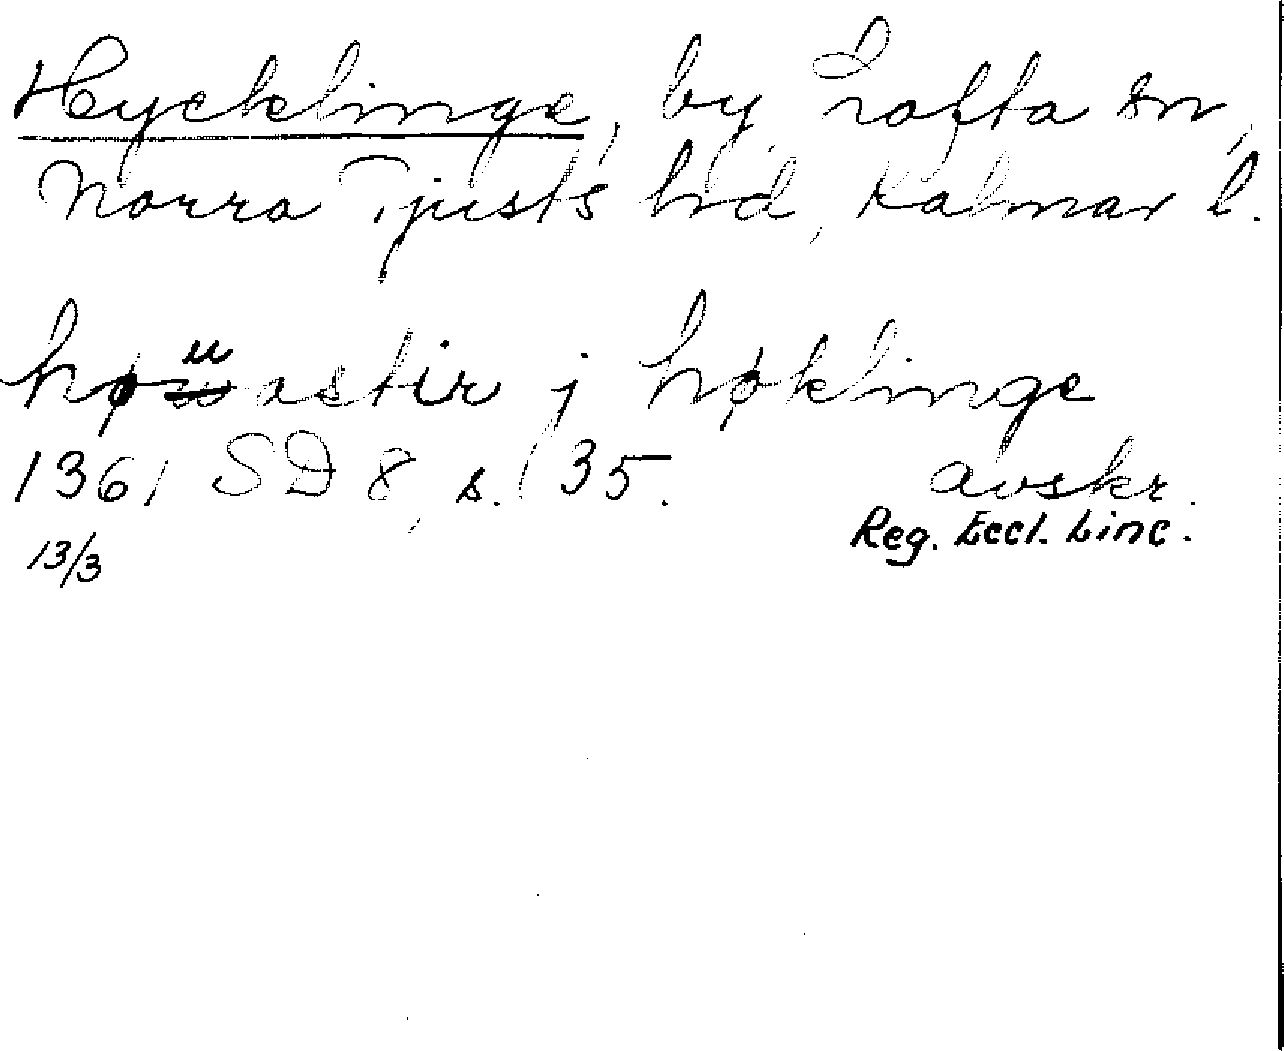 Hycklinge, by, Lofta sn,
Norra Tjusts hd, Kalmar l.
høuastir j høklinge
1361 SD 8, s. 135. avskr.
13/3 Reg. Eccl. Linc.